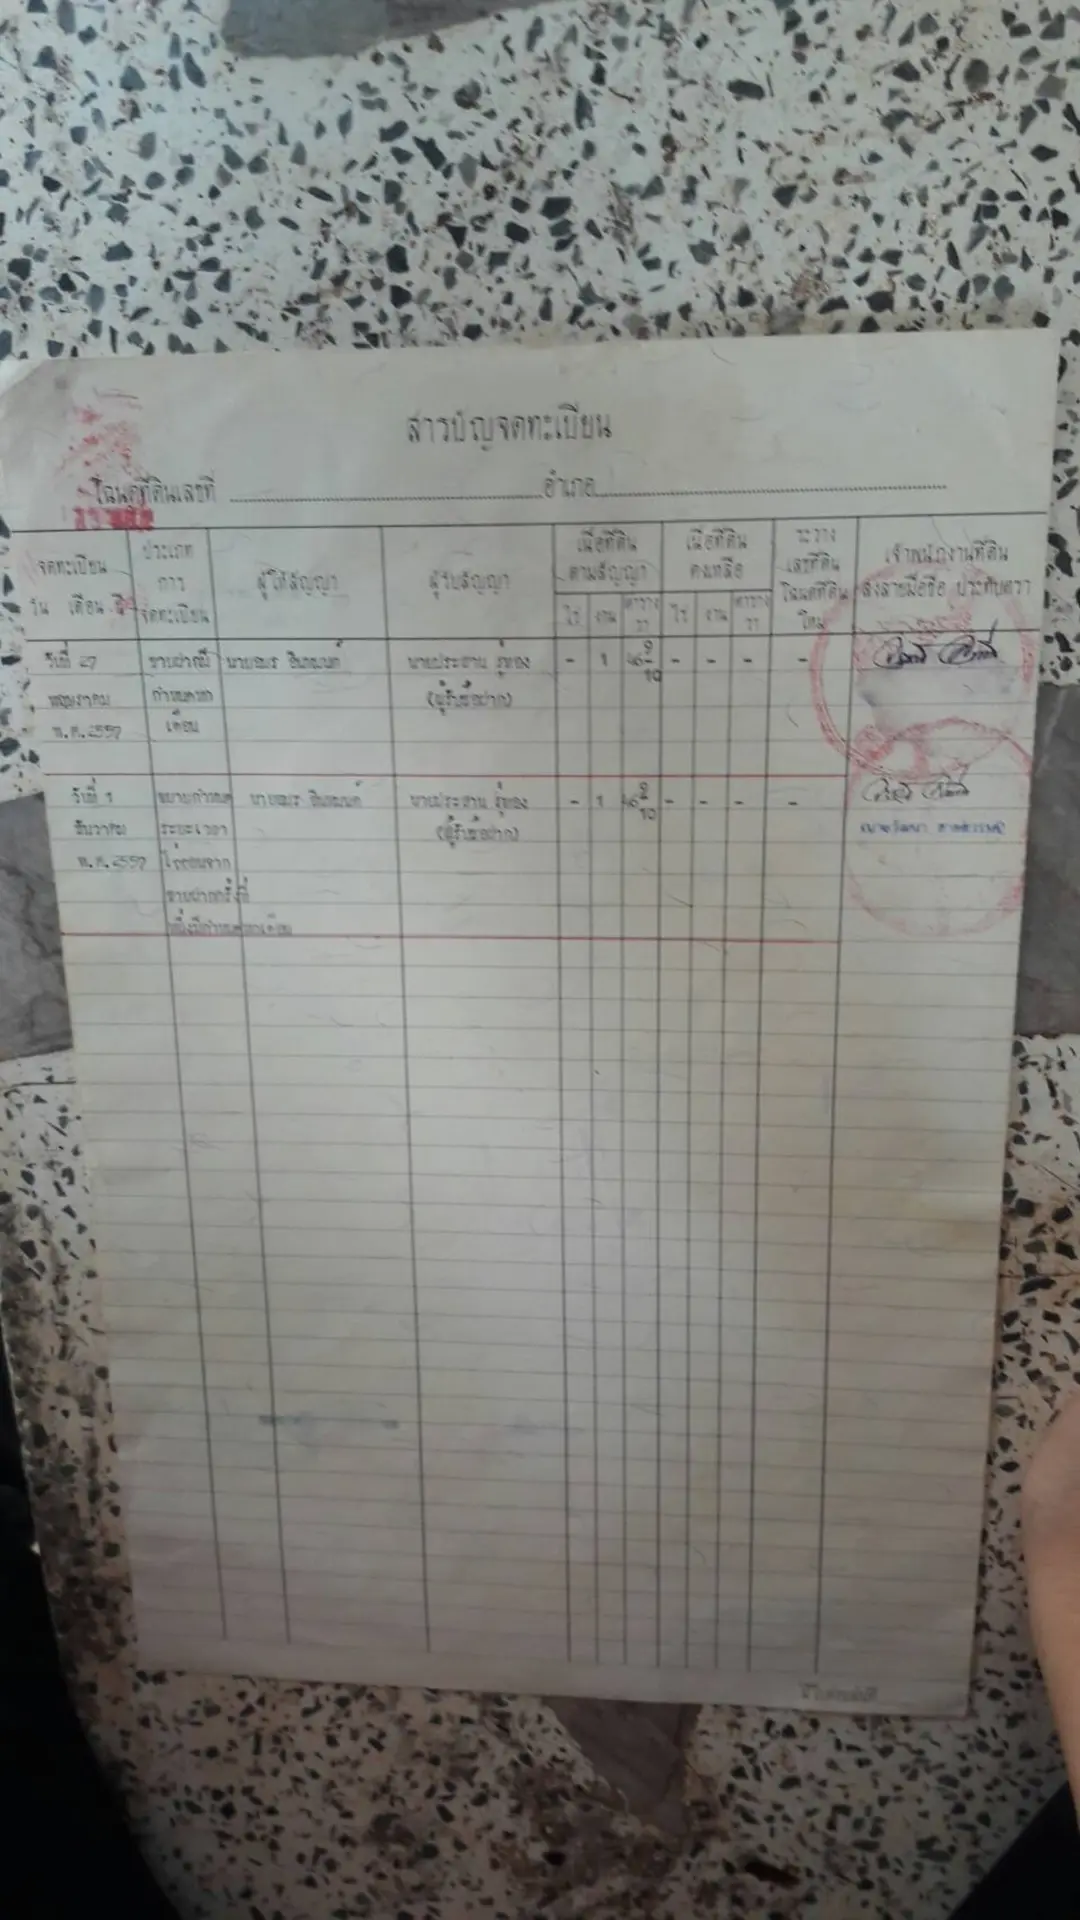 สารบัญจดทะเบียน
โฉนดที่ดินเลขที่ ............ อำเภอ ............
จดทะเบียน วัน เดือน ปี
ประเภทการจดทะเบียน
ผู้ให้สัญญา
ผู้รับสัญญา
เนื้อที่ดินตามสัญญา
ไร่ งาน ตารางวา
เนื้อที่ดินคงเหลือ
ไร่ งาน ตารางวา
ระวาง เลขที่ดิน โฉนดที่ดินใหม่
เจ้าพนักงานที่ดิน ลงลายมือชื่อ ประทับตรา
วันที่ 27 ขายฝากมี นายอมร นายประสาน - 1 46 9/10 - - - -
พฤษภาคม กำหนดหก (ผู้รับซื้อฝาก)
พ.ศ. 2557 เดือน
วันที่ 1 ขยายกำหนด นายอมร นายประสาน - 1 46 9/10 - - - -
ธันวาคม ระยะเวลา (ผู้รับซื้อฝาก)
พ.ศ. 2557 ไถ่ถอนจาก
ขายฝากครั้งที่
หนึ่งมีกำหนดหกเดือน